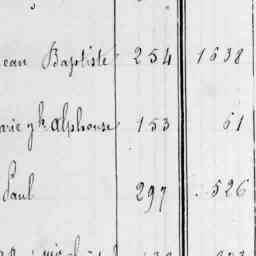 ean Baptiste 254 1638
arie jh Alphonse 153 61
Paul 297 526